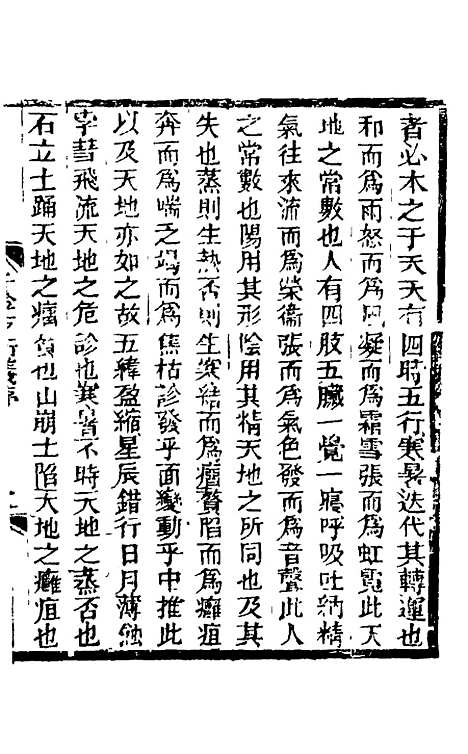 者必木之于天天有四時五行寒暑迭代其轉運也
和而爲雨怒而爲風凝而爲霜雪張而爲虹霓此天
地之常數也人有四肢五臟一覺一寢呼吸吐納精
氣往來流而爲榮衞張而爲氣色發而爲音聲此人
之常數也陽用其形陰用其精天地之所同也及其
失也蒸則生熱否則生寒結而爲瘤贅陷而爲癰疽
奔而爲喘乏竭而爲焦枯診發乎面變動乎中推此
以及天地亦如之故五緯盈縮星辰錯行日月薄蝕
孛彗飛流天地之危診也寒暑不時天地之蒸否也
石立土踊天地之瘤贅也山崩土陷天地之癰疽也